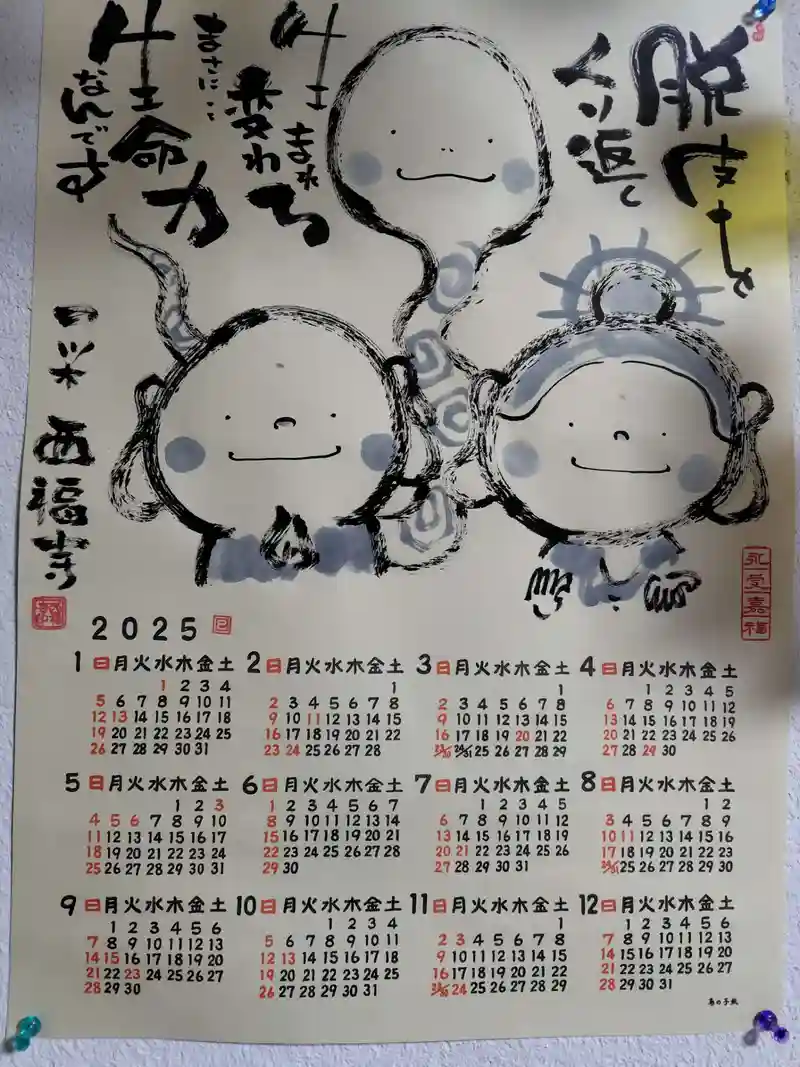 脱皮を
くり返し
生まれ
変わる
まさに…
生命力
なんです
西福寺
永受嘉福
2025 巳
1 日月火水木金土
1 2 3 4
5 6 7 8 9 10 11
12 13 14 15 16 17 18
19 20 21 22 23 24 25
26 27 28 29 30 31
2 日月火水木金土
1
2 3 4 5 6 7 8
9 10 11 12 13 14 15
16 17 18 19 20 21 22
23 24 25 26 27 28
3 日月火水木金土
1
2 3 4 5 6 7 8
9 10 11 12 13 14 15
16 17 18 19 20 21 22
23/30 24/31 25 26 27 28 29
4 日月火水木金土
1 2 3 4 5
6 7 8 9 10 11 12
13 14 15 16 17 18 19
20 21 22 23 24 25 26
27 28 29 30
5 日月火水木金土
1 2 3
4 5 6 7 8 9 10
11 12 13 14 15 16 17
18 19 20 21 22 23 24
25 26 27 28 29 30 31
6 日月火水木金土
1 2 3 4 5 6 7
8 9 10 11 12 13 14
15 16 17 18 19 20 21
22 23 24 25 26 27 28
29 30
7 日月火水木金土
1 2 3 4 5
6 7 8 9 10 11 12
13 14 15 16 17 18 19
20 21 22 23 24 25 26
27 28 29 30 31
8 日月火水木金土
1 2
3 4 5 6 7 8 9
10 11 12 13 14 15 16
17 18 19 20 21 22 23
24/31 25 26 27 28 29 30
9 日月火水木金土
1 2 3 4 5 6
7 8 9 10 11 12 13
14 15 16 17 18 19 20
21 22 23 24 25 26 27
28 29 30
10 日月火水木金土
1 2 3 4
5 6 7 8 9 10 11
12 13 14 15 16 17 18
19 20 21 22 23 24 25
26 27 28 29 30 31
11 日月火水木金土
1
2 3 4 5 6 7 8
9 10 11 12 13 14 15
16 17 18 19 20 21 22
23/30 24 25 26 27 28 29
12 日月火水木金土
1 2 3 4 5 6
7 8 9 10 11 12 13
14 15 16 17 18 19 20
21 22 23 24 25 26 27
28 29 30 31
鳥の子紙